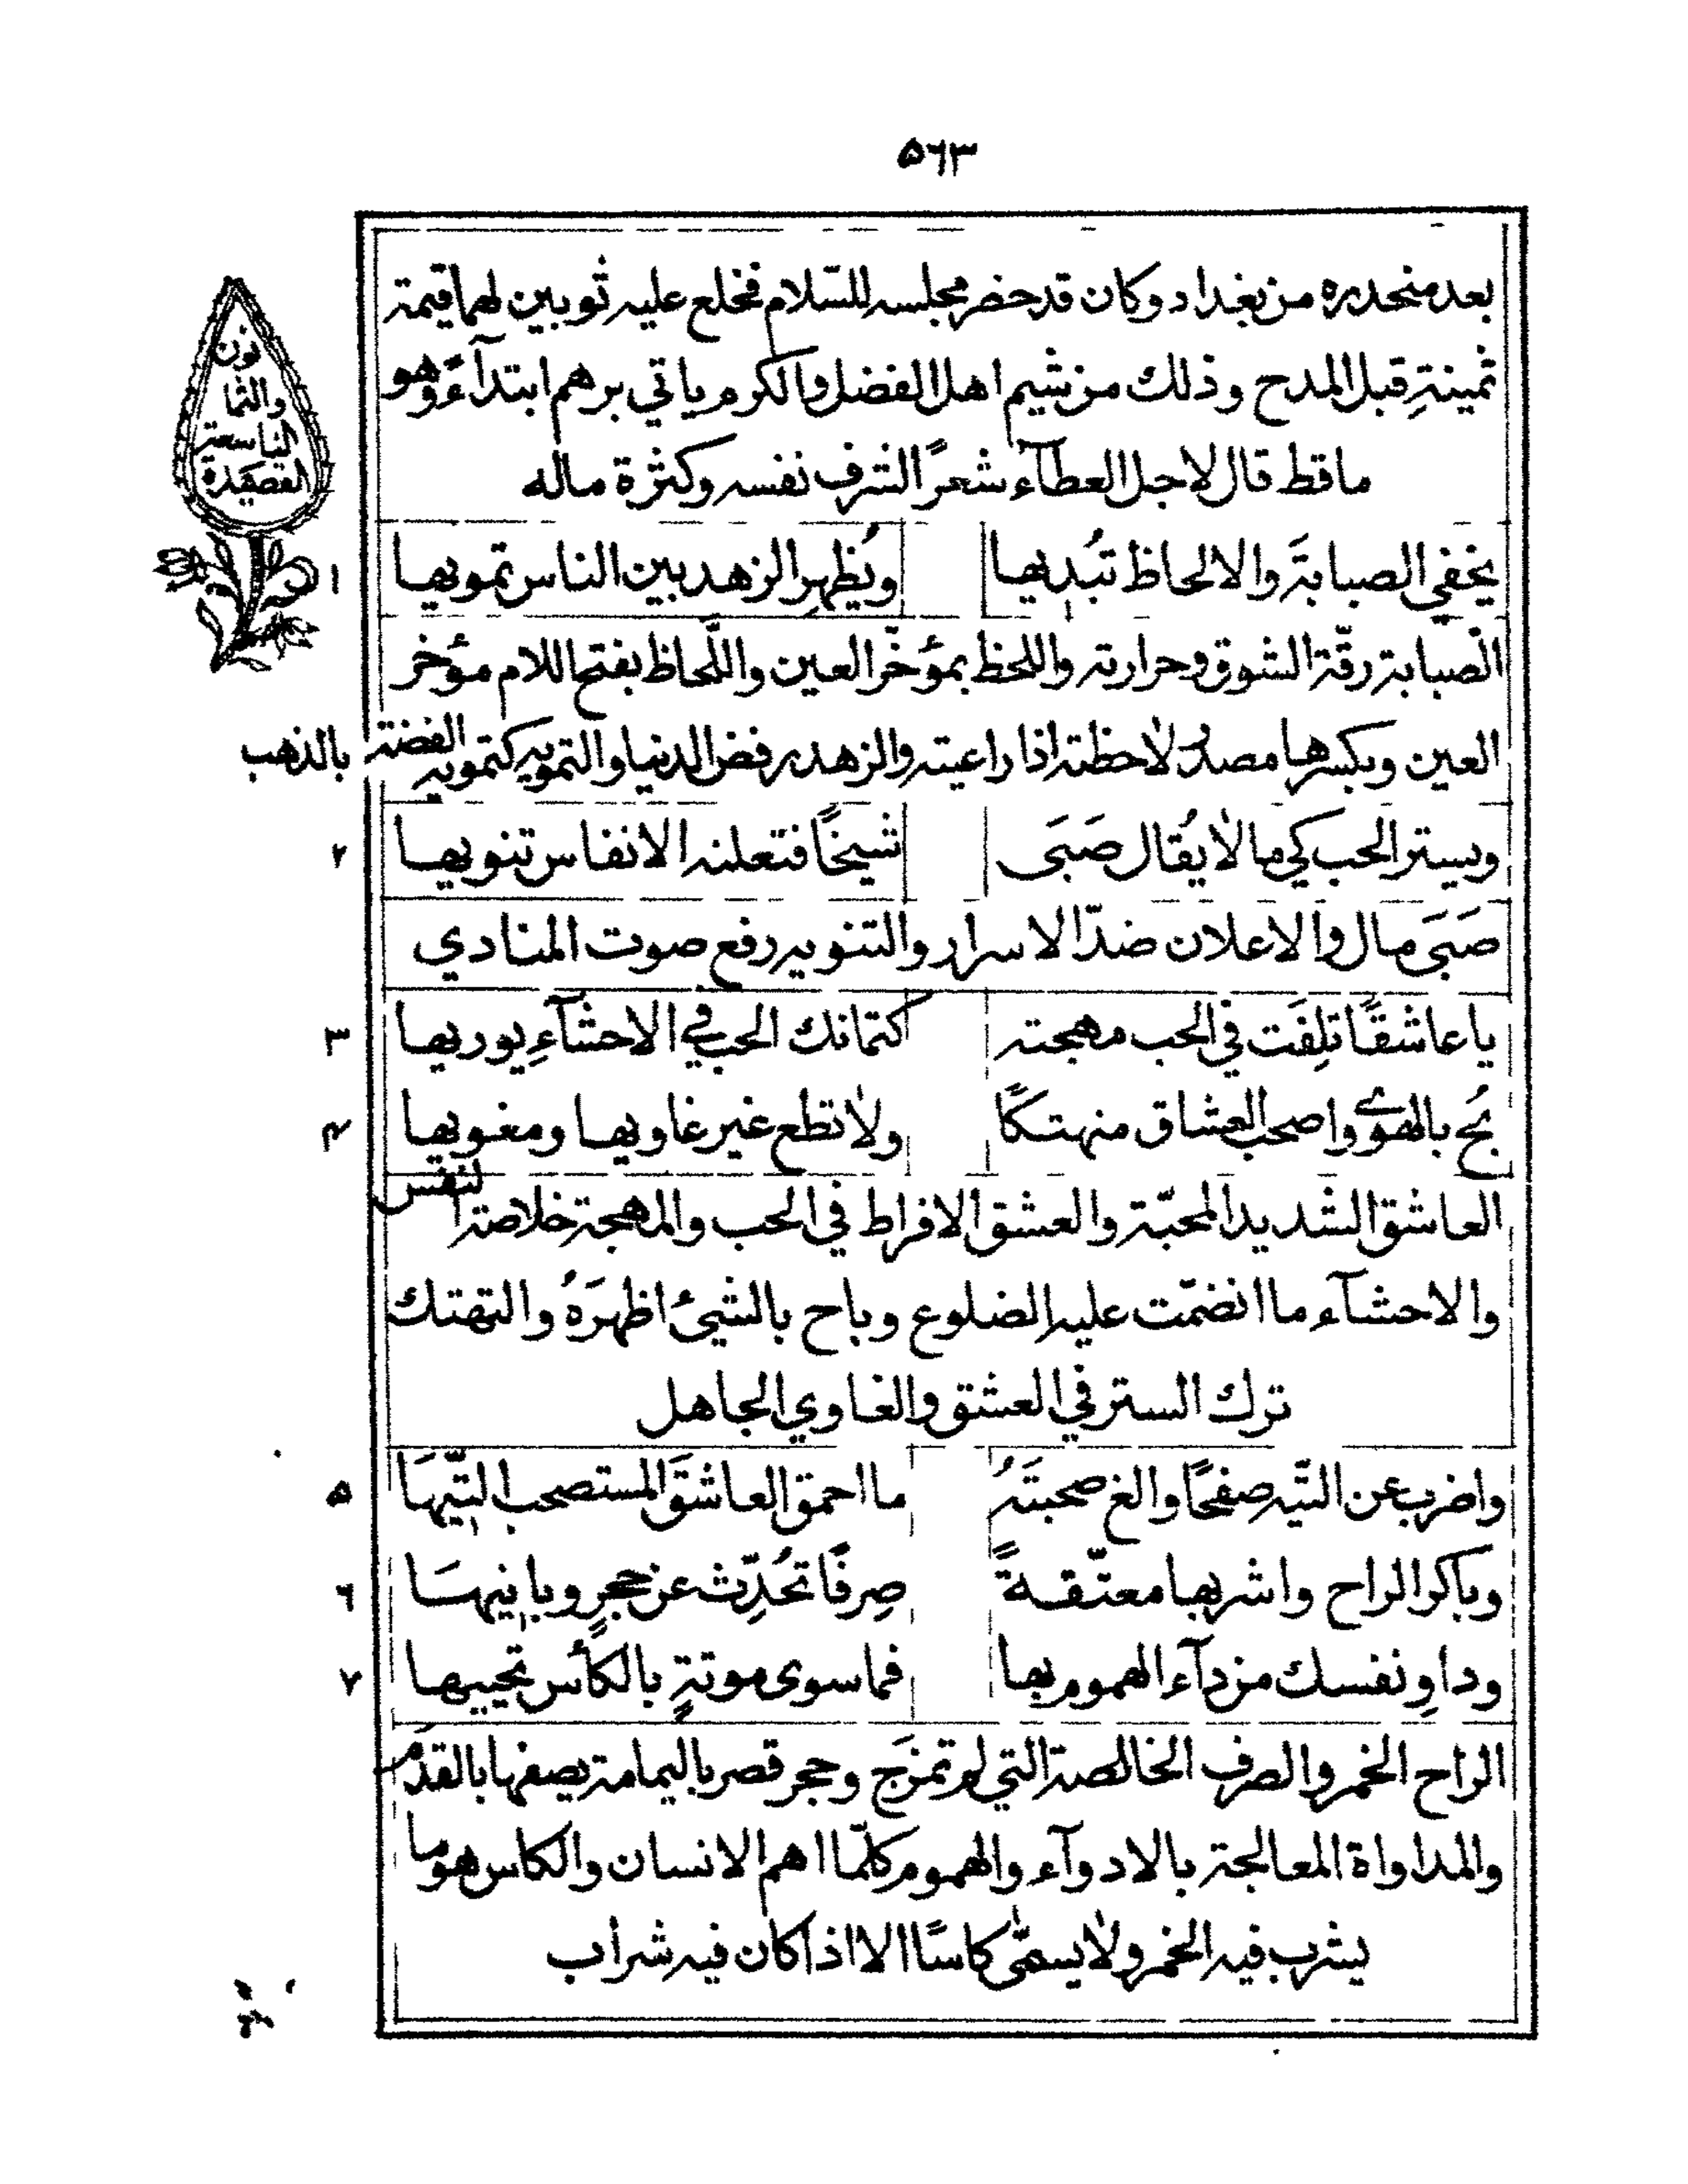 ٥٦٣
بعد منحدره من بغداد وكان قد حضر مجلسه للسّلام فخلع عليه ثوبين لهما قيمة
ثمينةِ قبل المدح وذلك من شيم اهل الفضل والكرم ياتي برهم ابتدآءً وهو
ما قط قال لاجل العطآء شعرًا لشرف نفسه وكثرة ماله
القصيدة
التاسعة
والثما
نون
يخفي الصبابةَ والالحاظ تُبديها ويُظهِر الزهد بين الناس تمويها ١
الصبابة رقّة الشوق وحرارته واللحظ بمؤخّر العين واللَّحاظ بفتح اللام مؤخر
العين وبكسرها مصدر لاحظته اذا راعيته والزهد رفض الدنيا والتمويه كتمويه الفضة بالذهب
ويستر الحب كي ما لا يُقال صَبَى شيخًا فتعلنه الانفاس تنويها ٢
صَبَى مال والاعلان ضدّ الاسرار والتنويه رفع صوت المنادي
يا عاشقًا تلِفَت في الحب مهجته كتمانك الحب في الاحشآءِ يوريها ٣
بُح بالهوى واصحب العشاق منهتكًا ولا تطع غير غاويها ومغويها ٤
العاشق الشديد المحبّة والعشق الافراط في الحب والمهجة خلاصة النفس
والاحشآء ما انضمّت عليه الضلوع وباح بالشيئ اظهرَهُ والتهتك
ترك الستر في العشق والغاوي الجاهل
واضرب عن التّيه صفحًا والغ صحبتَهُ ما احمق العاشقَ المستصحب التّيهَا ٥
وباكر الراح واشربها معتّقةً صِرفًا تحُدِّث عن حجرٍ وبانيهَا ٦
وداوِ نفسك من دآء الهموم بها فما سوى موتةٍ بالكأس تحييها ٧
الراح الخمر والصرف الخالصة التي لم تمزَج وحجر قصر باليمامة يصفها بالقدَم
والمداواة المعالجة بالادوآء والهموم كلّما اهم الانسان والكاس هو ما
يشرب فيه الخمر ولا يسمّى كاسًا الا اذا كان فيه شراب